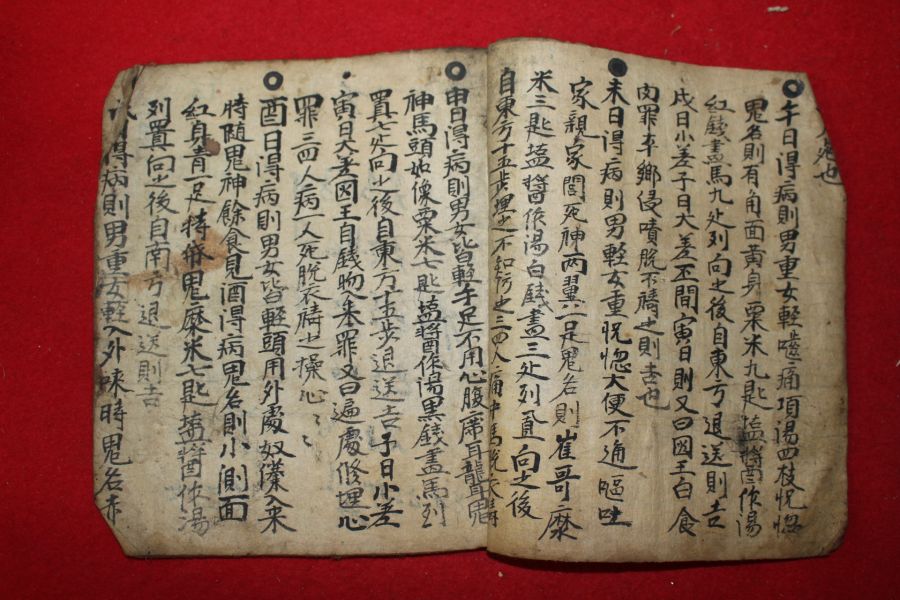 鬼也
午日得病則男重女輕 痛項湯四枝恍惚
鬼名則有角面黃身粟米九匙塩醬作湯
紅錢畫馬九处列向之後自東方退送則吉
戌日小差子日大差不間寅日則又曰國王白食
肉罪 鄕侵嘖脫不禱之則吉也
未日得病則男輕女重恍惚大便不通嘔吐
家親家間死神兩翼二足鬼名則崔哥糜
米三匙塩醬作湯白錢畫三处列置向之後
自東方十五步埋之不知 之三四人痛中
申日得病則男女皆輕手足不用心腹 耳聾耳鬼
神馬頭如像粟米七匙塩醬作湯黑錢畫馬列
置七处向之後自東方十五步退送吉子日小差
寅日大差因王自錢物 來罪又曰遍處修埋心
罪三四人病一人死脫衣禱之操心〻〻
酉日得病則男女皆輕頭用外處奴僕入來
時隨鬼神餘食見酒得病鬼名則小測面
紅身青足 鬼糜米七匙塩醬作湯
列置向之後自南方退送則吉
得病則男重女輕入外 時鬼名赤